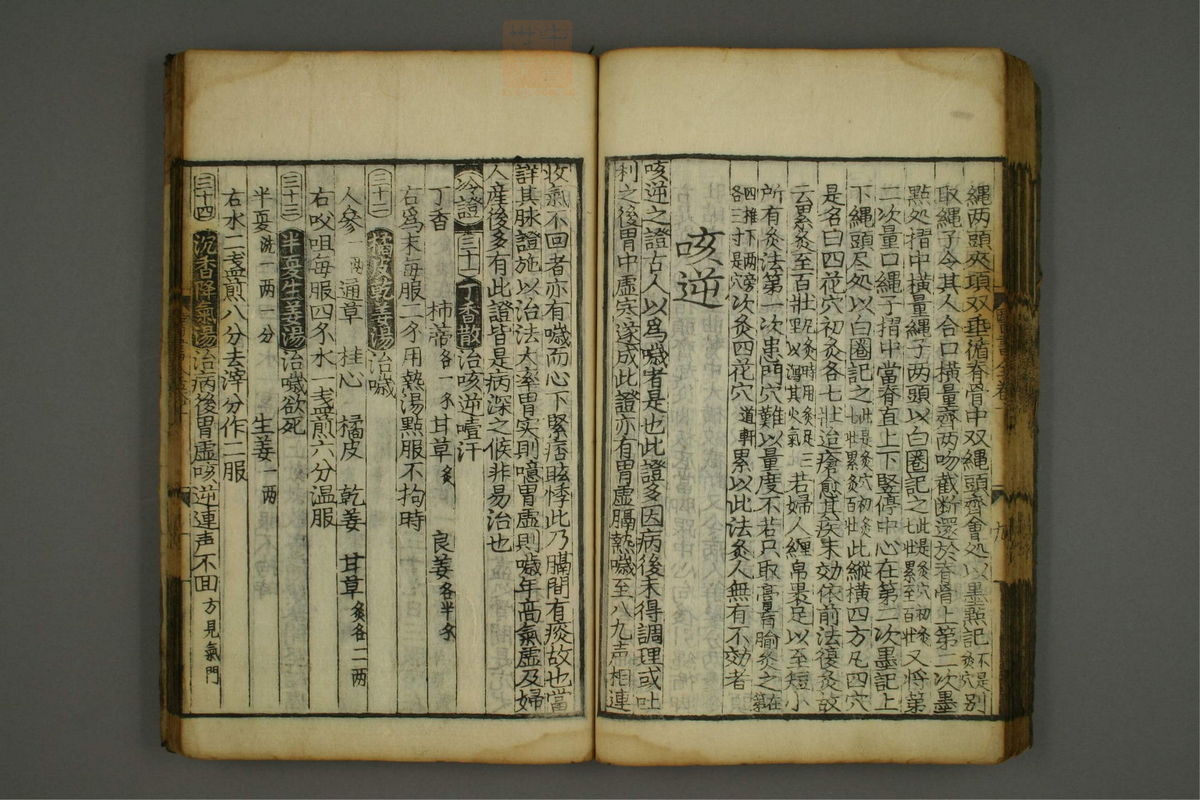 繩两頭夾項双垂循脊骨中双繩頭齊會処以墨㸃記不是灸穴別
取繩子令其人合口横量齊两吻截断還於脊骨上第二次墨
㸃処摺中横量繩子两頭以白圈記之此是灸穴初灸七壮累至百壮又将第
二次量口繩子摺中當脊直上下緊停中心在第二次墨記上
下繩頭尽処以白圈記之此是灸穴初灸七壮累灸百壮此縱横四方凡四穴
是名曰四花穴初灸各七壮迨瘡愈其疾未効依前法復灸故
云累灸至百壮
所有灸法第一次患門穴難以量度不若只取膏肓腧灸之在第
四推下两旁各三寸是穴次灸四花穴道軒累以此法灸人無有不効者
咳逆
咳逆之證古人以爲噦者是也此證多因病後未得調理或吐
利之後胃中虚寒遂成此證亦有胃虚膈熱噦至八九声相連
收氣不回者亦有噦而心下緊痞眩悸此乃膈間有痰故也當
詳其脉證施以治法大率胃实則噫胃虚則噦年髙氣虚及婦
人産後多有此證皆是病深之候非易治也
治證 三十一 丁香散 治咳逆噎汗
丁香 柿蒂各一錢 甘草炙 良姜各半錢
右爲末每服二錢用熱湯點服不拘時
三十二 橘皮乾姜湯 治噦
人參一两 通草 桂心 橘皮 乾姜 甘草炙各二两
右㕮咀每服四錢水一盞煎六分温服
三十三 半夏生姜湯 治噦欲死
半夏洗一两一分 生姜一两
右水二盞煎八分去滓分作二服
三十四 沉香降氣湯 治病後胃虚咳逆連声不囬方見氣門